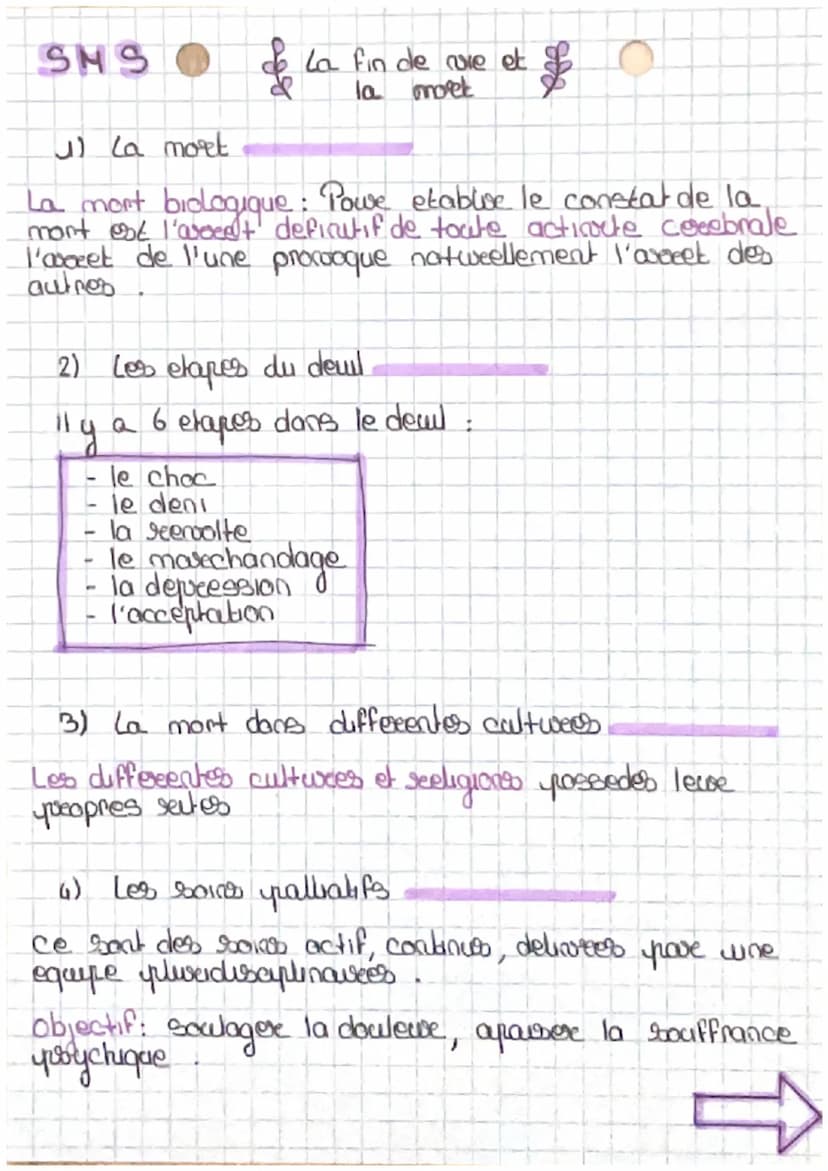 SMS
La fin de vie et
la mort
1) La mort
La mort biologique : Pour etablir le constat de la
mort est l'arrêt definitif de toute activite cerebrale
l'arret de l'une provoque naturellement l'arret des
autres .
2) Les etapes du deuil
Il y a 6 etapes dans le deuil :
- le choc
- le deni
- la revolte
- le marchandage
- la depression
- l'acceptation
3) La mort dans differentes cultures
Les differentes cultures et religions possedes leur
propres rites
4) Les soins palliatifs
Ce sont des soins actif, continus, delivrees par une
equipe pluridisciplinaires .
Objectif : soulager la douleur, apaiser la souffrance
psychique .